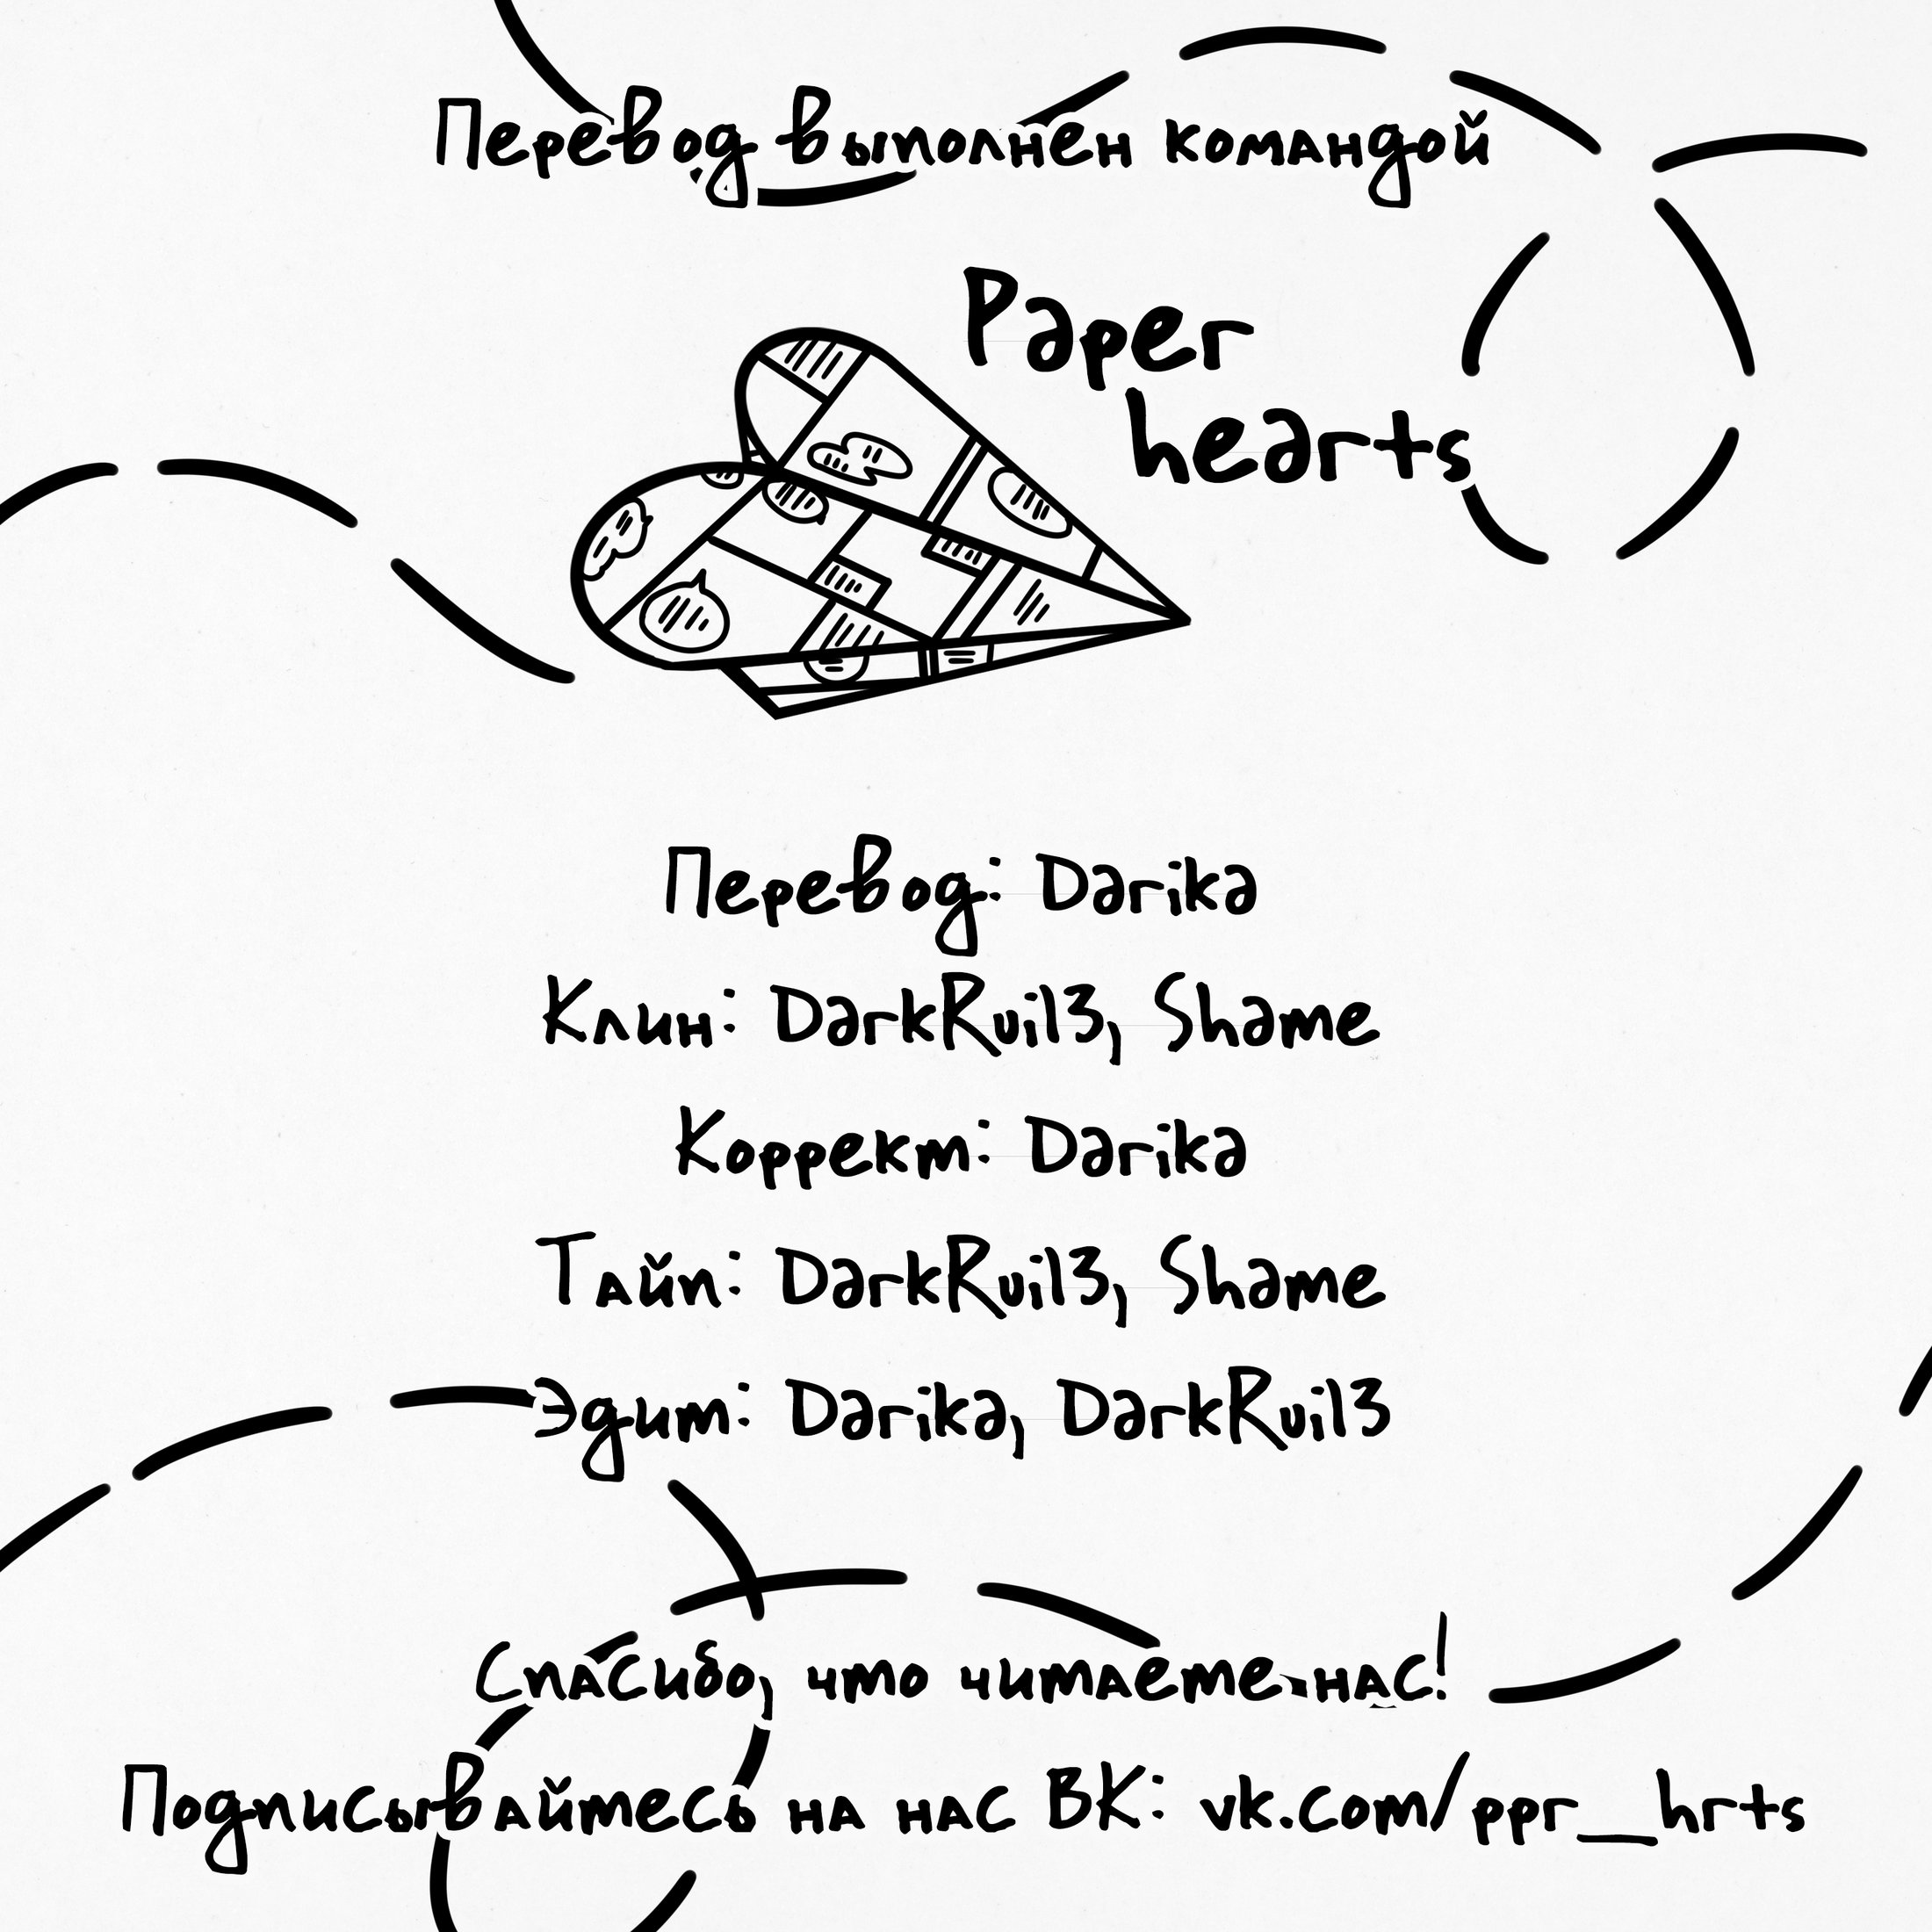 Перевод выполнен командой
Paper
hearts
Перевод: Darika
Клин: DarkRuil3, Shame
Коррект: Darika
Тайп: DarkRuil3, Shame
Эдит: Darika, DarkRuil3
Спасибо, что читаете нас!
Подписывайтесь на нас ВК: vk.com/ppr__hrts